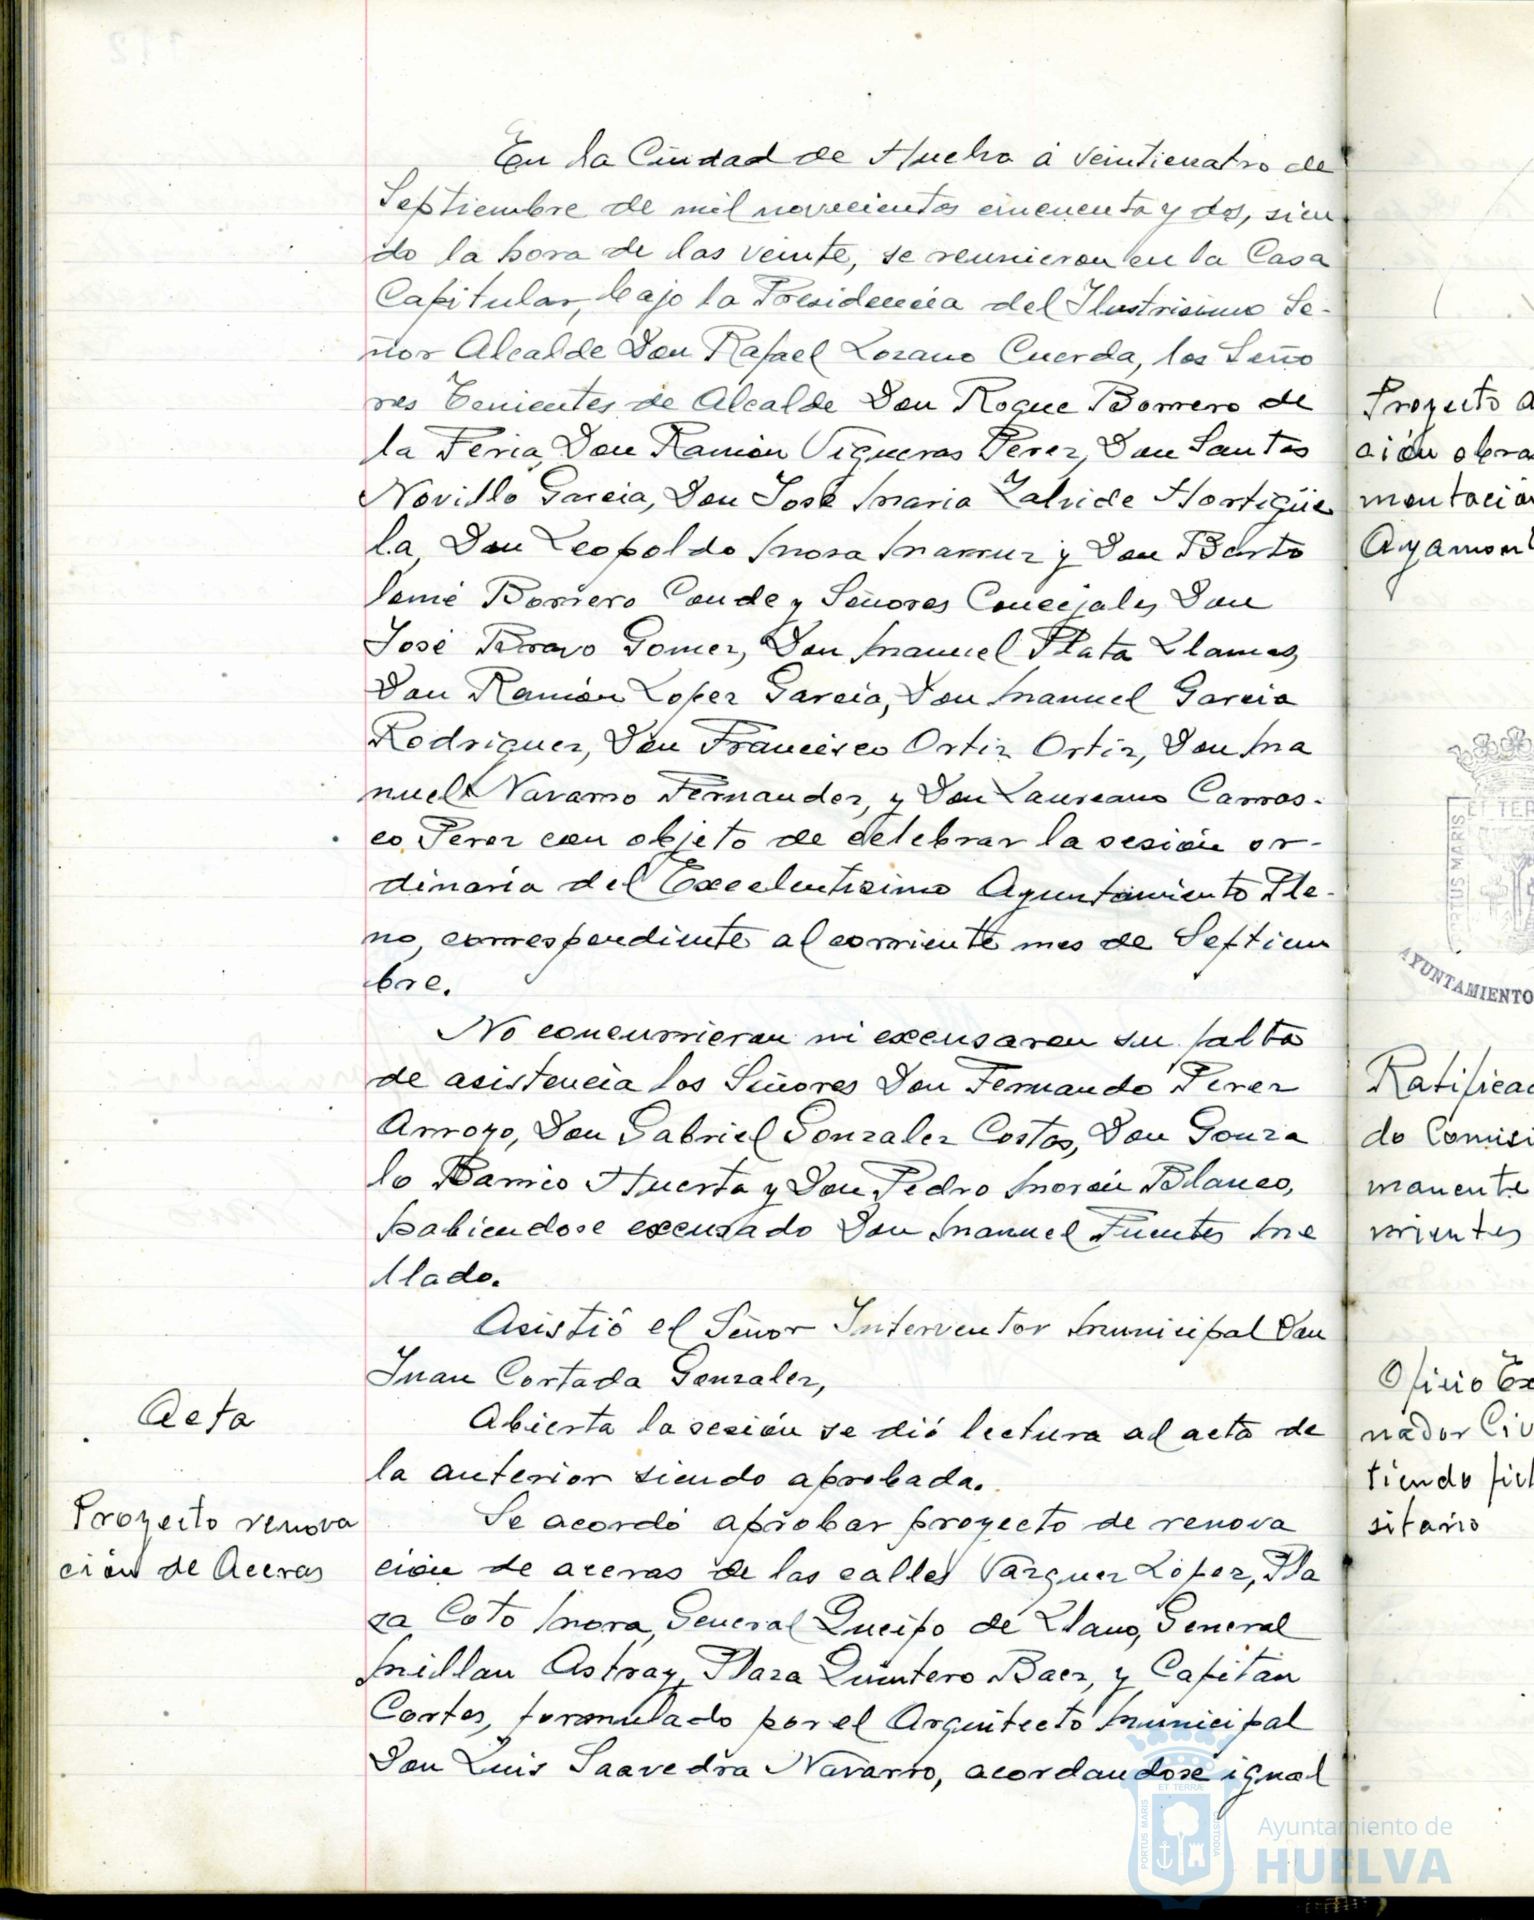 En la Ciudad de Huelva á veinticuatro de
Septiembre de mil novecientos cincuenta y dos, sien
do la hora de las veinte, se reunieron en la Casa
Capitular, bajo la Presidencia del Ilustrisimo Se-
ñor Alcalde Don Rafael Lozano Cuerda, los Seño
res Tenientes de Alcalde Don Roque Borrero de
la Feria, Don Ramón Vigueras Perez, Don Santos
Novillo Garcia, Don José Maria Zalvide Hortigüe
la, Don Leopoldo Mora Marruz y Don Barto
lomé Borrero Conde y Señores Concejales Don
José Bravo Gomez, Don Manuel Plata Llamas,
Don Ramón Lopez Garcia, Don Manuel Garcia
Rodriguez, Don Francisco Ortiz Ortiz, Don Ma
nuel Navarro Fernandez, y Don Laureano Carras-
co Perez con objeto de celebrar la sesión or-
dinaria del Excelentisimo Ayuntamiento Ple-
no, correspondiente al corriente mes de Septiem
bre.
No concurrieron ni excusaron su falta
de asistencia los Señores Don Fernando Perez
Arroyo, Don Gabriel Gonzalez Costas, Don Gonza
lo Barrio Huerta y Don Pedro Morón Blanco,
habiendose excusado Don Manuel Fuentes Me
llado.
Asistió el Señor Interventor Municipal Don
Juan Cortada Gonzalez,
Acta
Abierta la sesión se dió lectura al acta de
la anterior siendo aprobada.
Proyecto renova
ción de Aceras
Se acordó aprobar proyecto de renova
ción de aceras de las calles Vazquez Lopez, Pla
za Coto Mora, General Queipo de Llano, General
Millan Astray, Plaza Quintero Baez, y Capitan
Cortes, formulado por el Arquitecto Municipal
Don Luis Saavedra Navarro, acordandose igual
Proyecto
ción obra
mentación
Ayamont
ET TER
PORTUS MARIS
AYUNTAMIENTO
Ratificac
do Comisi
manente
rrientes
Oficio Ex
nador Civ
tiendo
sitario
PORTUS MARIS ET TERRÆ CUSTODIA
Ayuntamiento de
HUELVA